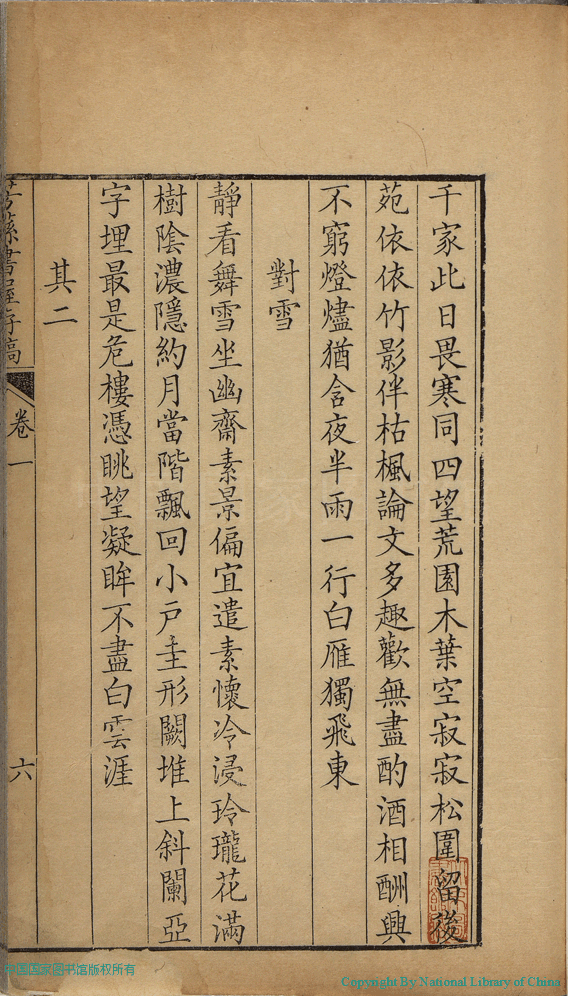 千家此日畏寒同四望荒園木葉空寂寂松圍留後
苑依依竹影伴枯楓論文多趣歡無盡酌酒相酬興
不窮燈燼猶含夜半雨一行白雁獨飛東
對雪
靜看舞雪坐幽齋素景偏宜遣素懷冷浸玲瓏花滿
樹陰濃隱約月當階飄回小戶圭形闕堆上斜闌亞
字埋最是危樓憑眺望凝眸不盡白雲涯
其二
書屋存稿
卷一
六
中国国家图书馆版权所有
Copyright By National Library of China